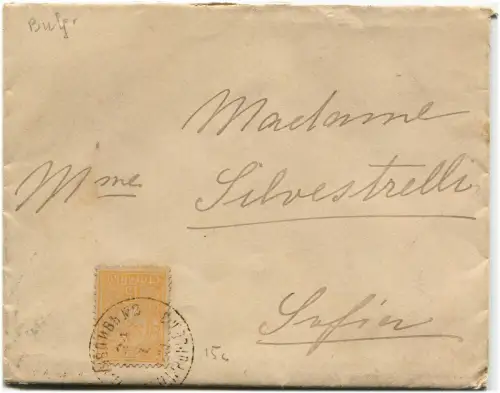 Bulg.
Madame
Mme Silvestrelli
Sofia
15
15c